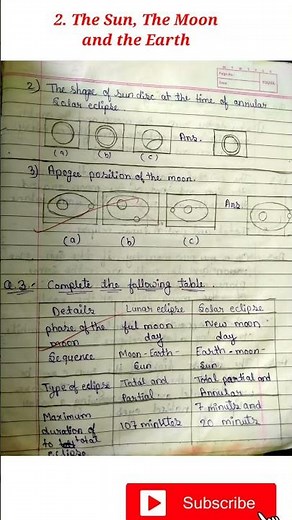 2. The Sun, The Moon
and the Earth
2) The shape of sun disc at the time of annular
Solar eclipse
Ans.
(a) (b) (c)
3) Apogee position of the moon.
Ans
(a) (b) (c)
Q.3:- Complete the following table.
Details Lunar eclipse Solar eclipse
phase of the moon ful moon day New moon day
Sequence Moon-Earth-Sun Earth-moon-Sun.
Type of eclipse Total and Partial. Total partial and Annular
Maximum duration of total eclipse 107 minutes 7 minuts and 20 minuts
Subscribe